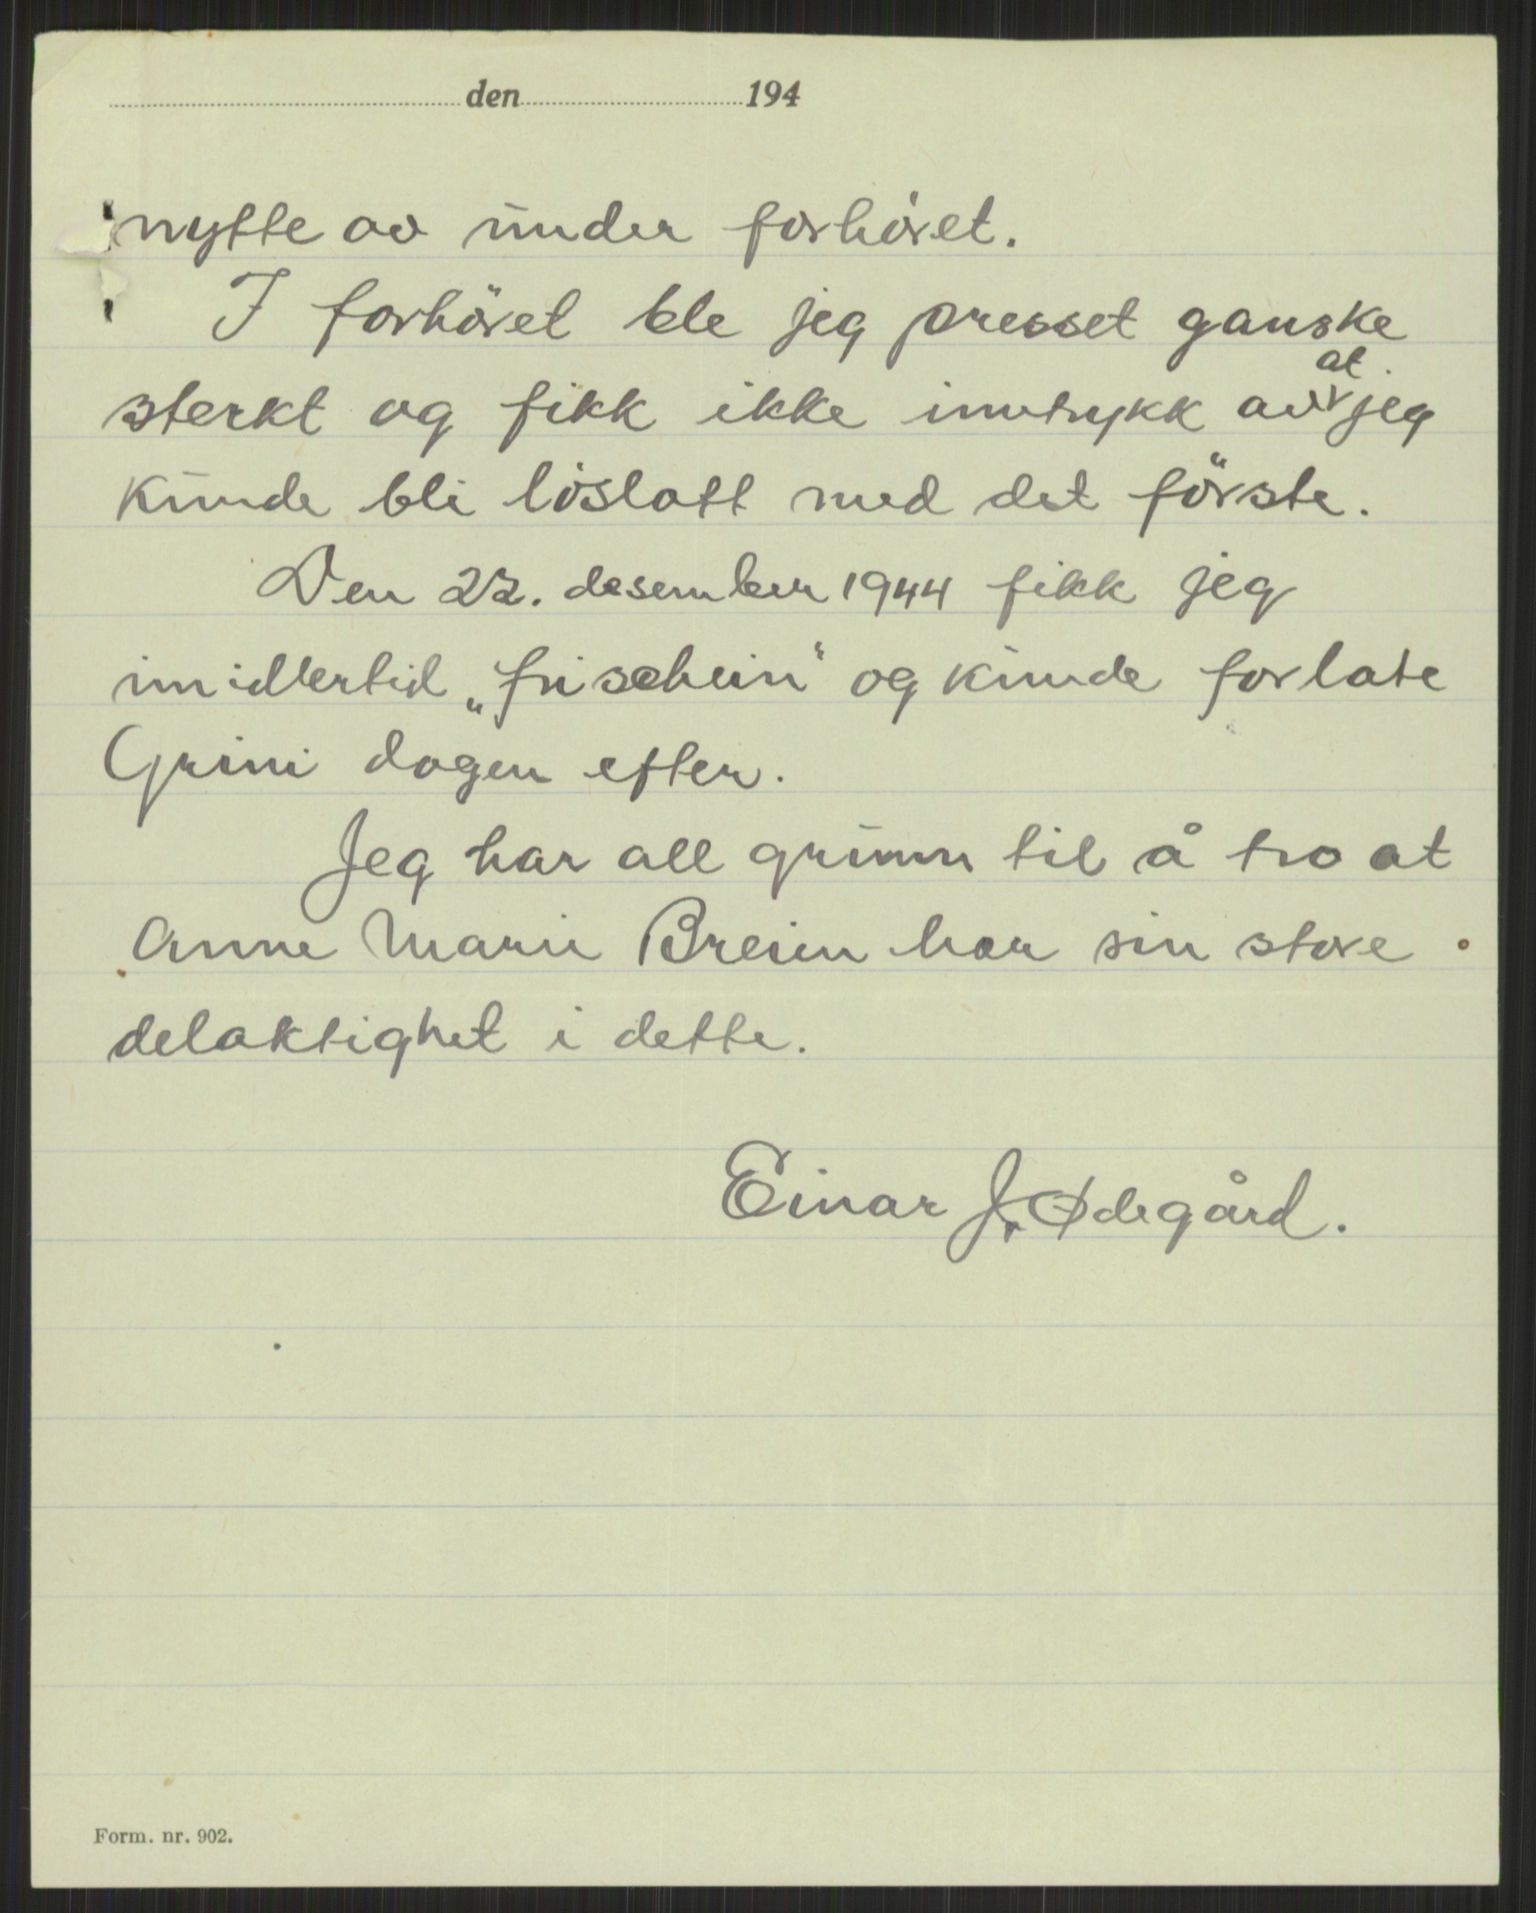 den 194
nytte av under forhöret.
I forhöret ble jeg presset ganske
sterkt og fikk ikke inntrykk av at jeg
kunde bli löslatt med det förste.
Den 22. desember 1944 fikk jeg
imidlertid „frischein“ og kunde forlate
Grini dagen efter.
Jeg har all grunn til å tro at
Anne Marie Breien har sin store
delaktighet i dette.
Einar J. Ødegård.
Form. nr. 902.